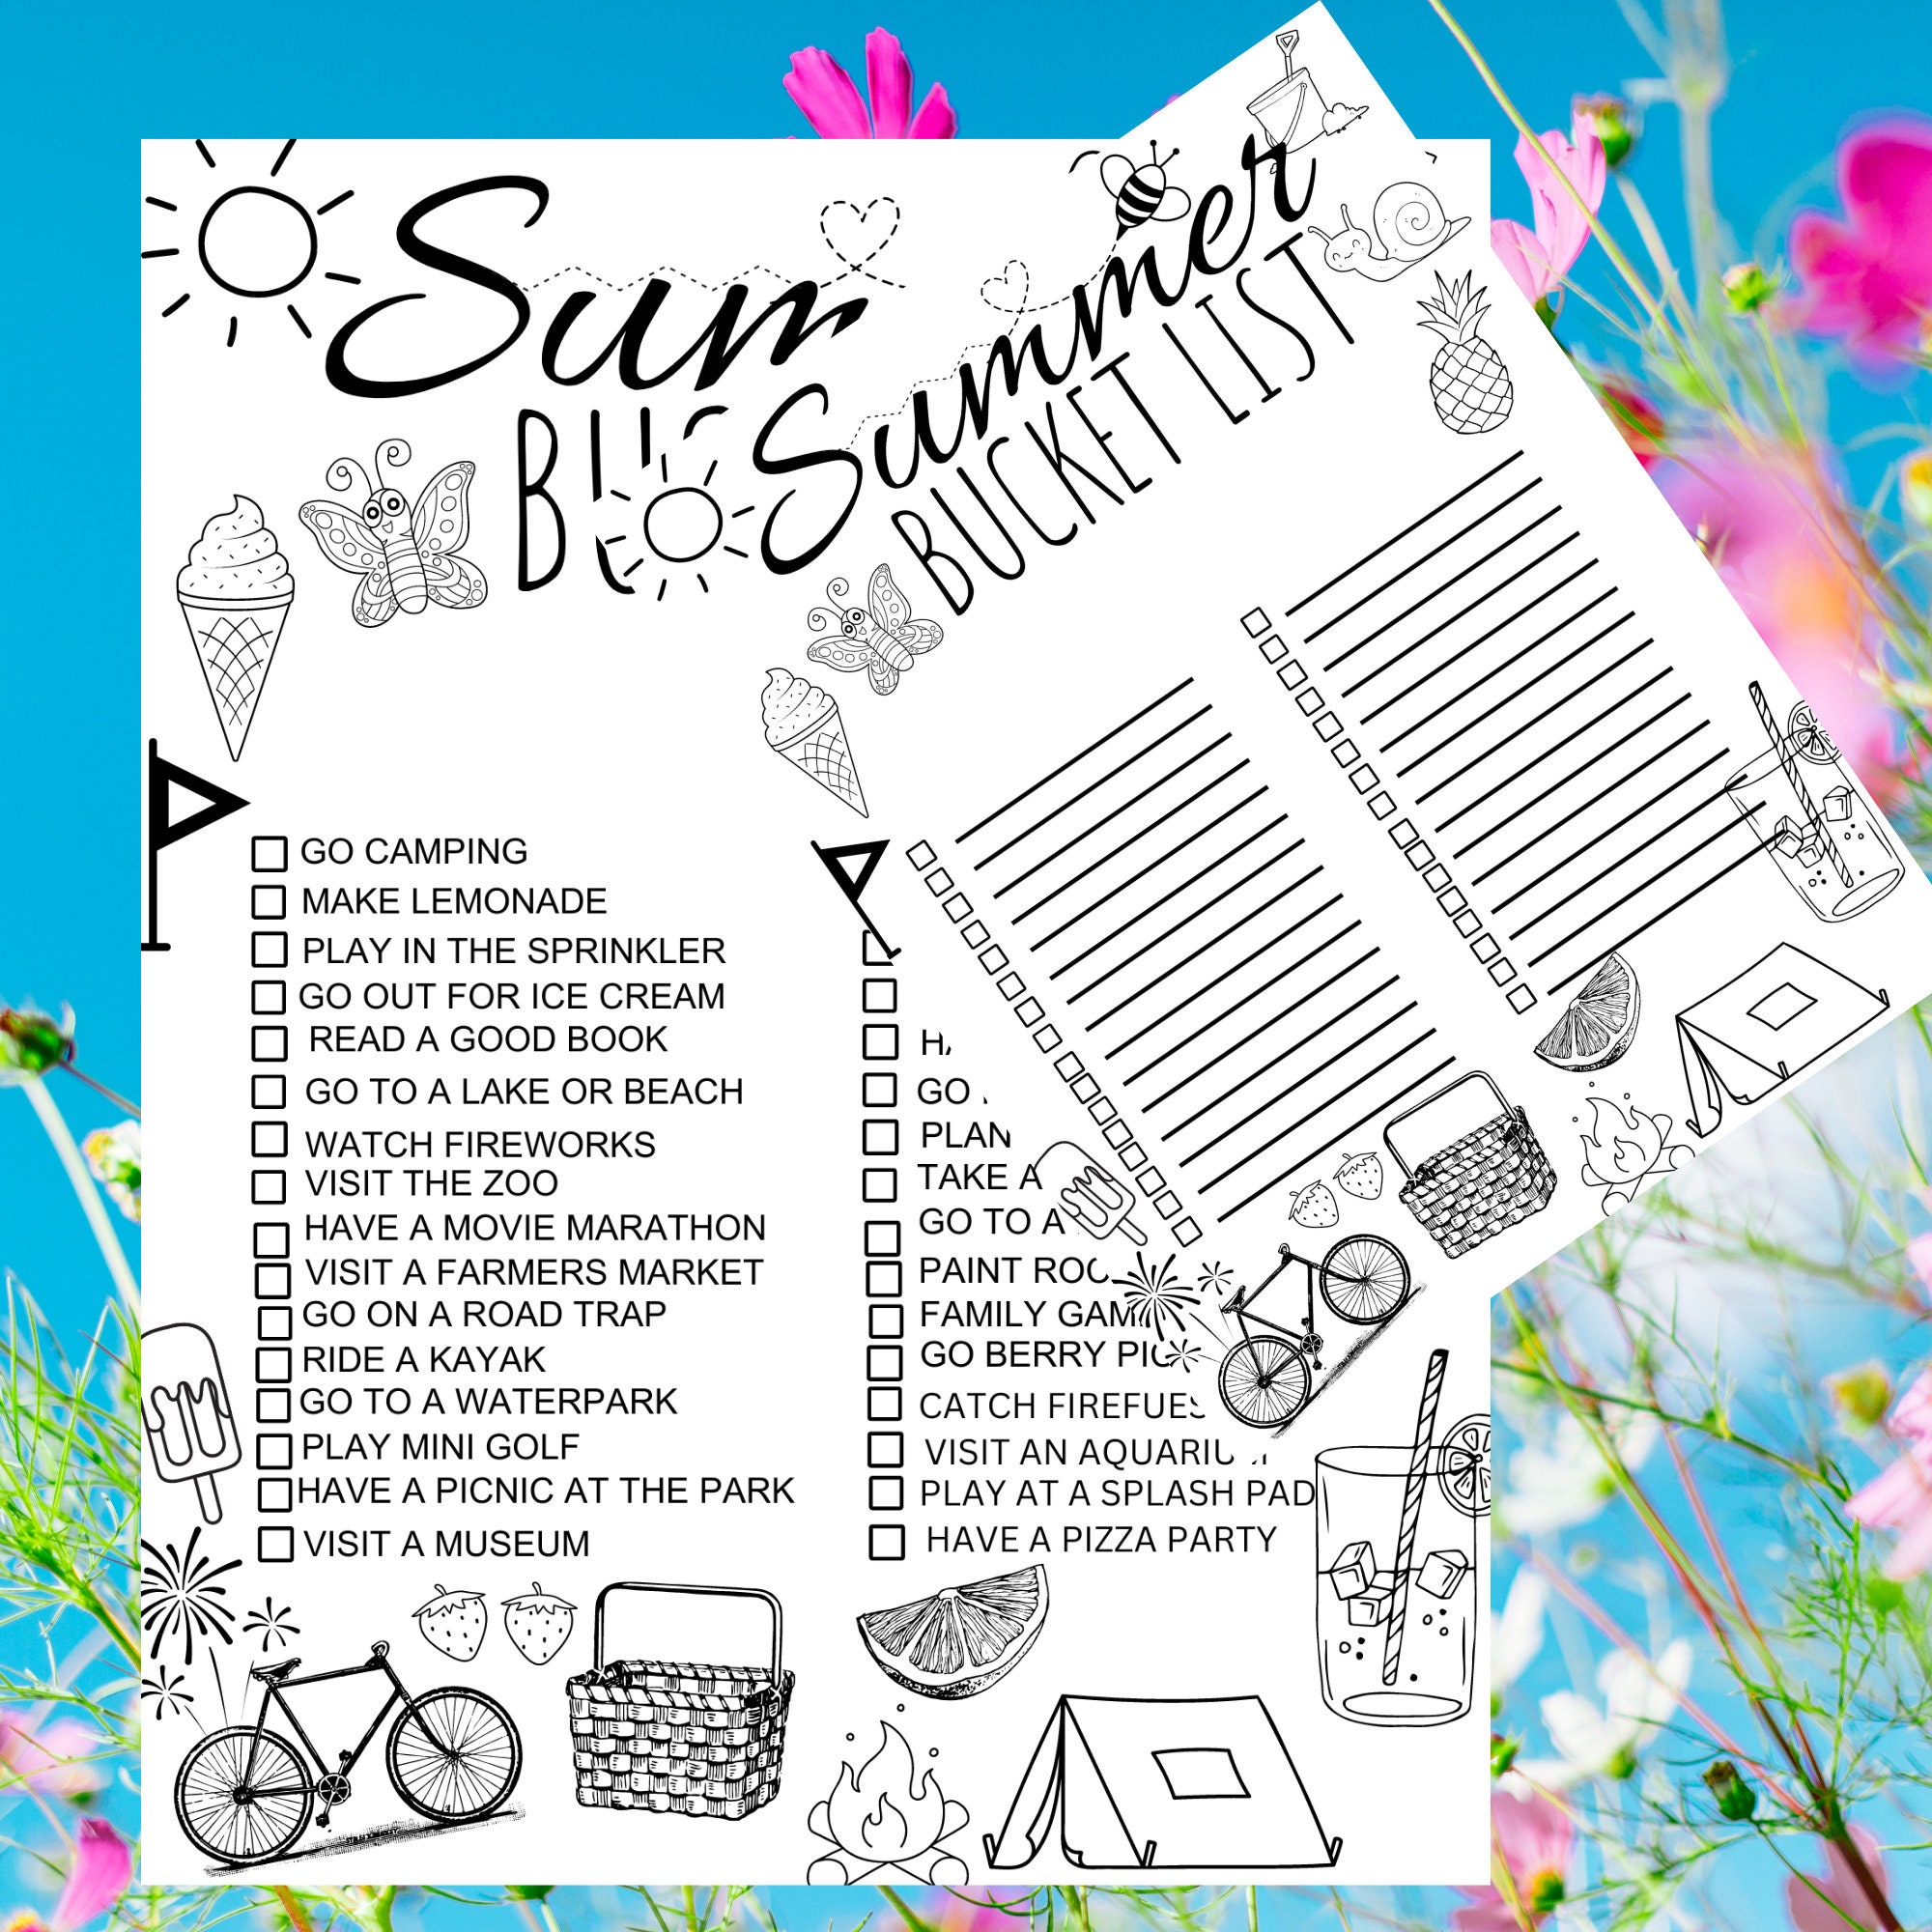 Summer
BUCKET LIST
GO CAMPING
MAKE LEMONADE
PLAY IN THE SPRINKLER
GO OUT FOR ICE CREAM
READ A GOOD BOOK
GO TO A LAKE OR BEACH
WATCH FIREWORKS
VISIT THE ZOO
HAVE A MOVIE MARATHON
VISIT A FARMERS MARKET
GO ON A ROAD TRAP
RIDE A KAYAK
GO TO A WATERPARK
PLAY MINI GOLF
HAVE A PICNIC AT THE PARK
VISIT A MUSEUM
GO
PLAN
TAKE A
GO TO A
PAINT
FAMILY
GO BERRY
CATCH FIREFUES
VISIT AN AQUARIUM
PLAY AT A SPLASH PAD
HAVE A PIZZA PARTY